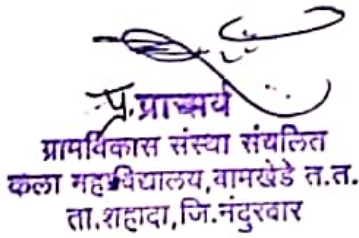 प्र.प्राचार्य
ग्रामविकास संस्था संचलित
कला महाविद्यालय,बामखेडे त.त.
ता.शहादा,जि.नंदुरबार